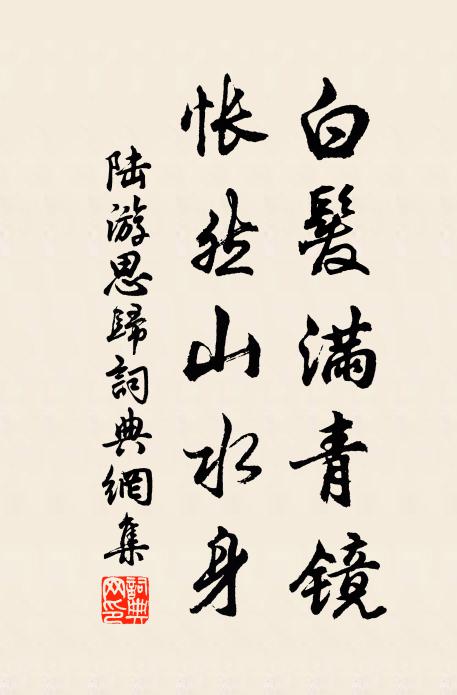 白髮滿青鏡
悵然山水身
陸游思歸詞典網集
詞典網印